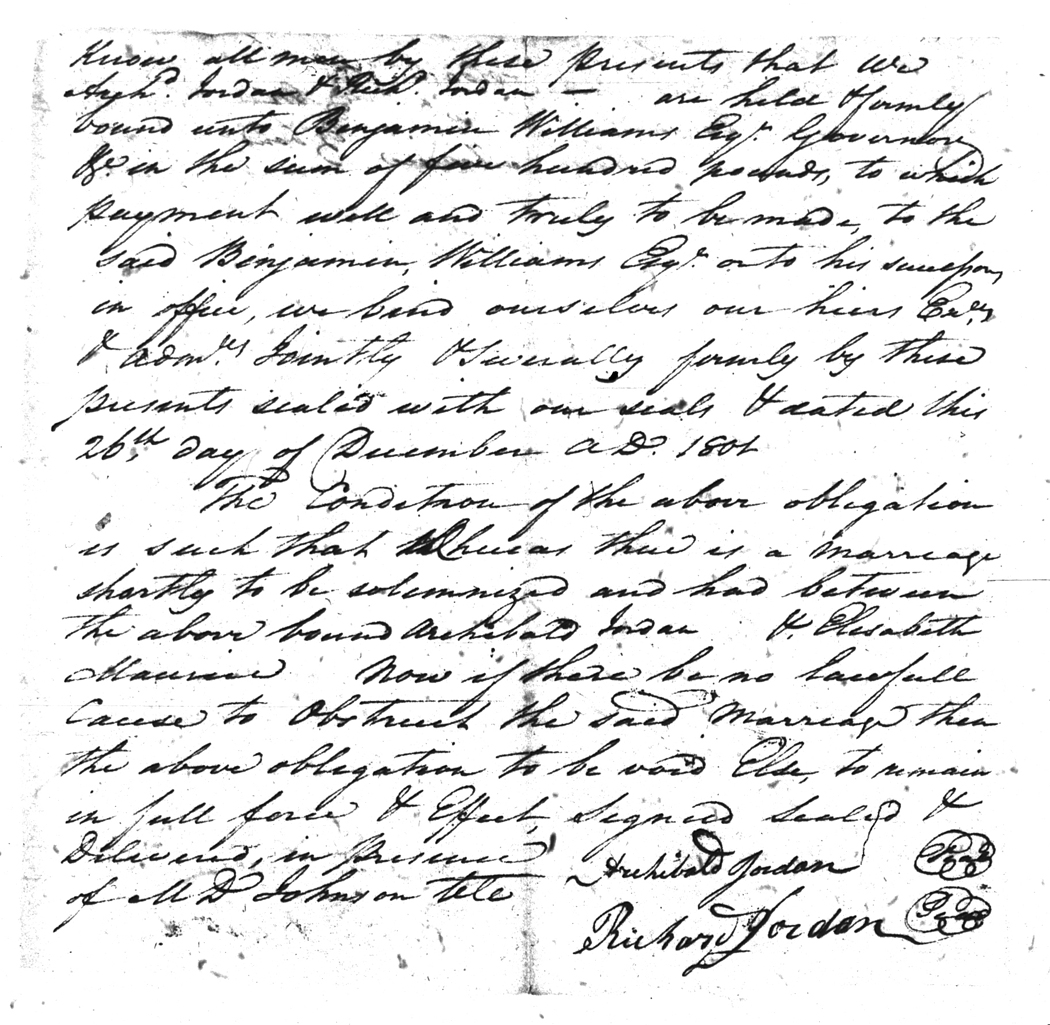 Know all men by these presents that we
Archd. Jordan & Richd. Jordan — are held & firmly
bound unto Benjamin Williams Esqr. Governor
&c in the sum of five hundred pounds, to which
payment well and truly to be made, to the
said Benjamin, Williams Esqr. or to his successors
in office, we bind ourselves our hiers Exrs
& admrs Jointly & Severally firmly by these
presents sealed with our seals & dated this
26th day of December A.D. 1801
The Condition of the above obligation
is such that Whereas there is a marriage
shortly to be solemnized and had between
the above bound Archibald Jordan &. Elisabeth
Maurice Now if there be no lawfull
Cause to Obstruct the said Marriage then
the above obligation to be void Else, to remain
in full force & Effect, Signed Sealed &
Delivered, in presence
of M D Johnson
Archibald Jordan Seal
Richard Jordan Seal